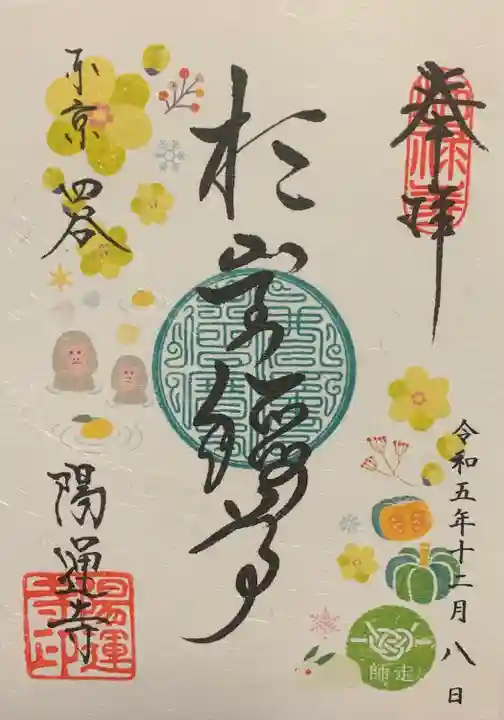 奉拝
令和五年十二月八日
師走
於岩
東京四谷
陽運寺
陽運寺印